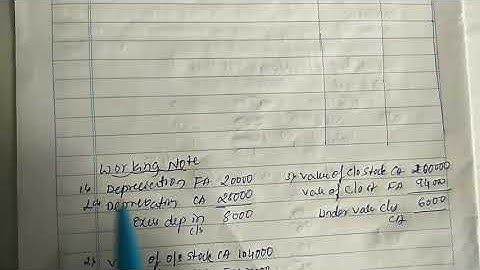 Working Note
1) Depreciation FA 20000
Depreciation CA 28000
exces dep in 8000
c/s
3) Value of clo stock CA 100000
value of clo st FA 94000
under value clo 6000
CA
2) of o/p stock CA 104000